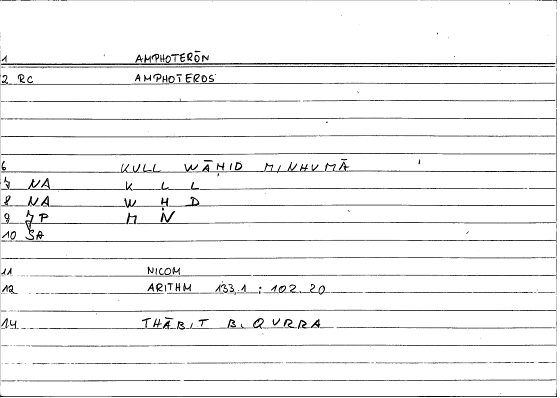 1 AMPHOTERŌN
2 RC AMPHOTEROS
6 KULL WĀḤID MINHUMĀ
7 NA K L L
8 NA W Ḥ D
9 JP M N
10 SA
11 NICOM
12 ARITHM 133,1 : 102.20
14 THĀBIT B. QURRA